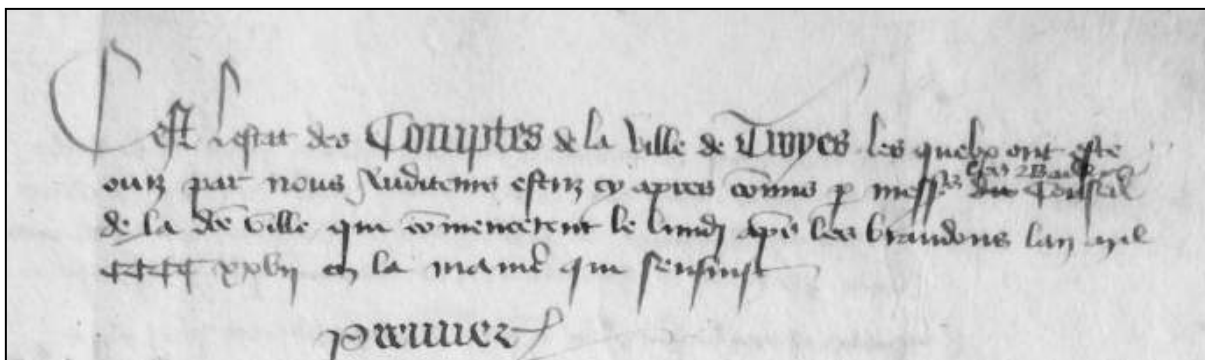 C'est l'estat des Comptes de la Ville de Troyes les quelx ont esté
ouiz par nous Auditeurs esliz cy apres co̅mis p̱ mess^rs du Conseil
de la dᵉ ville qui co̅mencerent le lundj apš les brandons lan mil
CCCC xxvij en la manieᵉ qui sensuyt
Premier